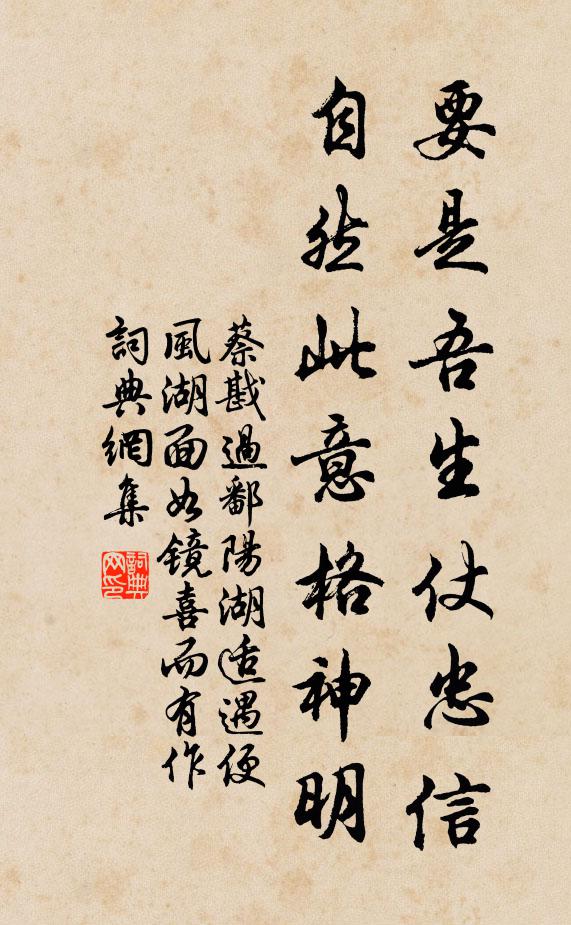 要是吾生仗忠信
自然此意格神明
蔡戡過鄱陽湖适遇便
風湖面如镜喜而有作
詞典網集
詞典
网印